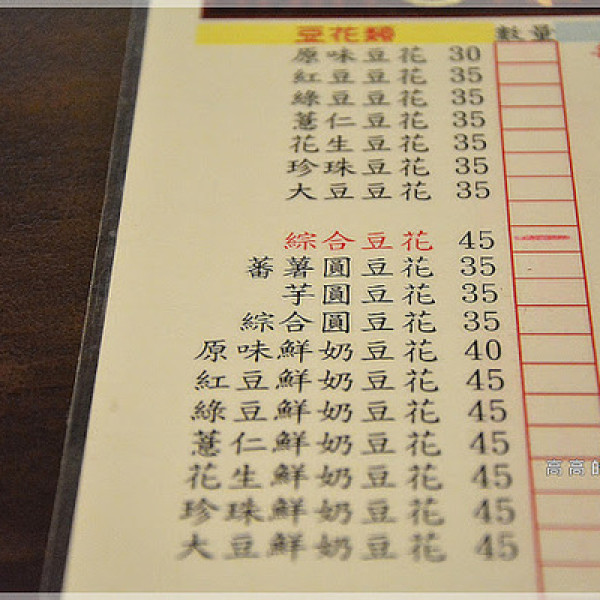 豆花類 數量
原味豆花 30
紅豆豆花 35
綠豆豆花 35
薏仁豆花 35
花生豆花 35
珍珠豆花 35
大豆豆花 35
綜合豆花 45
蕃薯圓豆花 35
芋圓豆花 35
綜合圓豆花 35
原味鮮奶豆花 40
紅豆鮮奶豆花 45
綠豆鮮奶豆花 45
薏仁鮮奶豆花 45
高高的
花生鮮奶豆花 45
珍珠鮮奶豆花 45
大豆鮮奶豆花 45